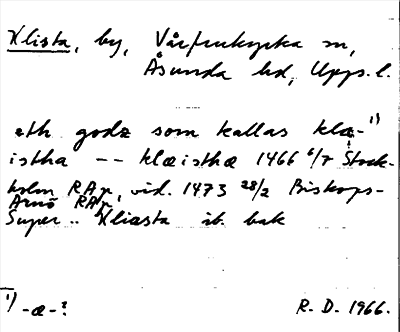 Klista, by, Vårfrukyrka sn,
Åsunda hd, Upps. l.
eth godz som kallas klæ- 1)
istha -- klæisthæ 1466 6/7 Stock-
holm RAp, vid. 1473 28/2 Biskops-
Arnö RAp,
Super .. Kliæsta ib. bak
1) -æ-?
R. D. 1966.